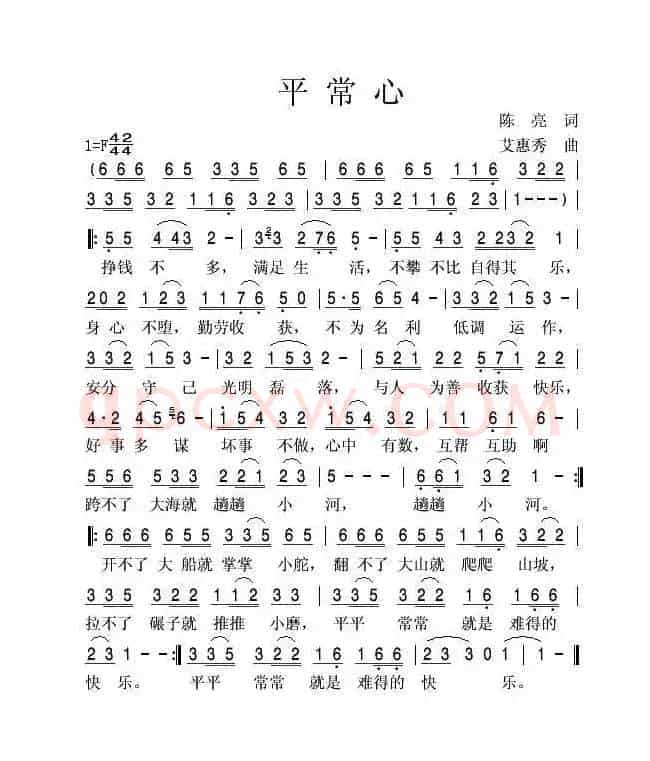 平常心
陈亮 词
1=F 42/44 艾惠秀 曲
(666 65 335 65 | 666 65 116 322 |
335 32 116 323 | 335 32116 23 | 1---) |
‖: 55 443 2- | 323 276 5- | 55 43 2232 1 |
挣钱不多，满足生活，不攀不比自得其乐，
202 123 | 1176 50 | 5·5 654- | 332 153- |
身心不堕，勤劳收获，不为名利低调运作，
332 153- | 32 153 2- | 521 22 571 22 |
安分守己光明磊落，与人为善收获快乐，
4·2 45 6- | 154 32 | 154 32 | 11 61 6- |
好事多谋坏事不做，心中有数，互帮互助啊
556 533 221 23 | 5-- | 661 32 1- :‖
跨不了大海就趟趟小河，趟趟小河。
‖: 666 655 335 65 | 666 655 116 322 |
开不了大船就掌掌小舵，翻不了大山就爬爬山坡，
335 322 112 323 | 335 322 116 166 |
拉不了碾子就推推小磨，平平常常就是难得的
231-- :‖ 335 322 116 166 | 23 301 | 1- ‖
快乐。平平常常就是难得的快乐。
qpcxw.com